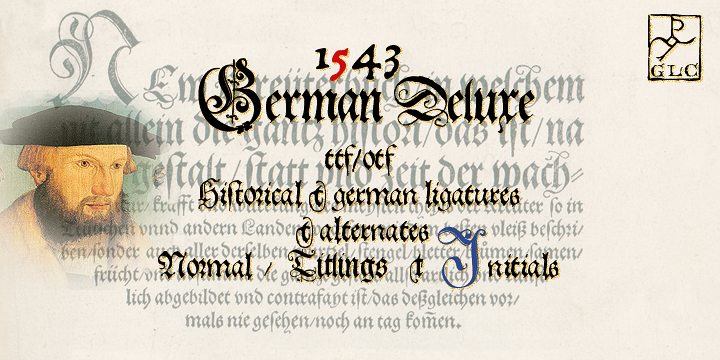 1543
GLC
German Deluxe
ttf/otf
Historical & german ligatures
& alternates
Normal / Titlings & Initials
NEw Kreüterbuch/in welchem
nit allein die gantz histori/das ist/na
gestalt/statt vnd zeit der wach-
krafft so in
Teutschen vnnd andern Landen vleiß beschri-
ben/sonder auch aller derselben stengel/bletter/blumen/somen/
frücht/
lich abgebildet vnd contrafayt ist/das deßgleichen vor/
mals nie gesehen/noch an tag kom̃en.